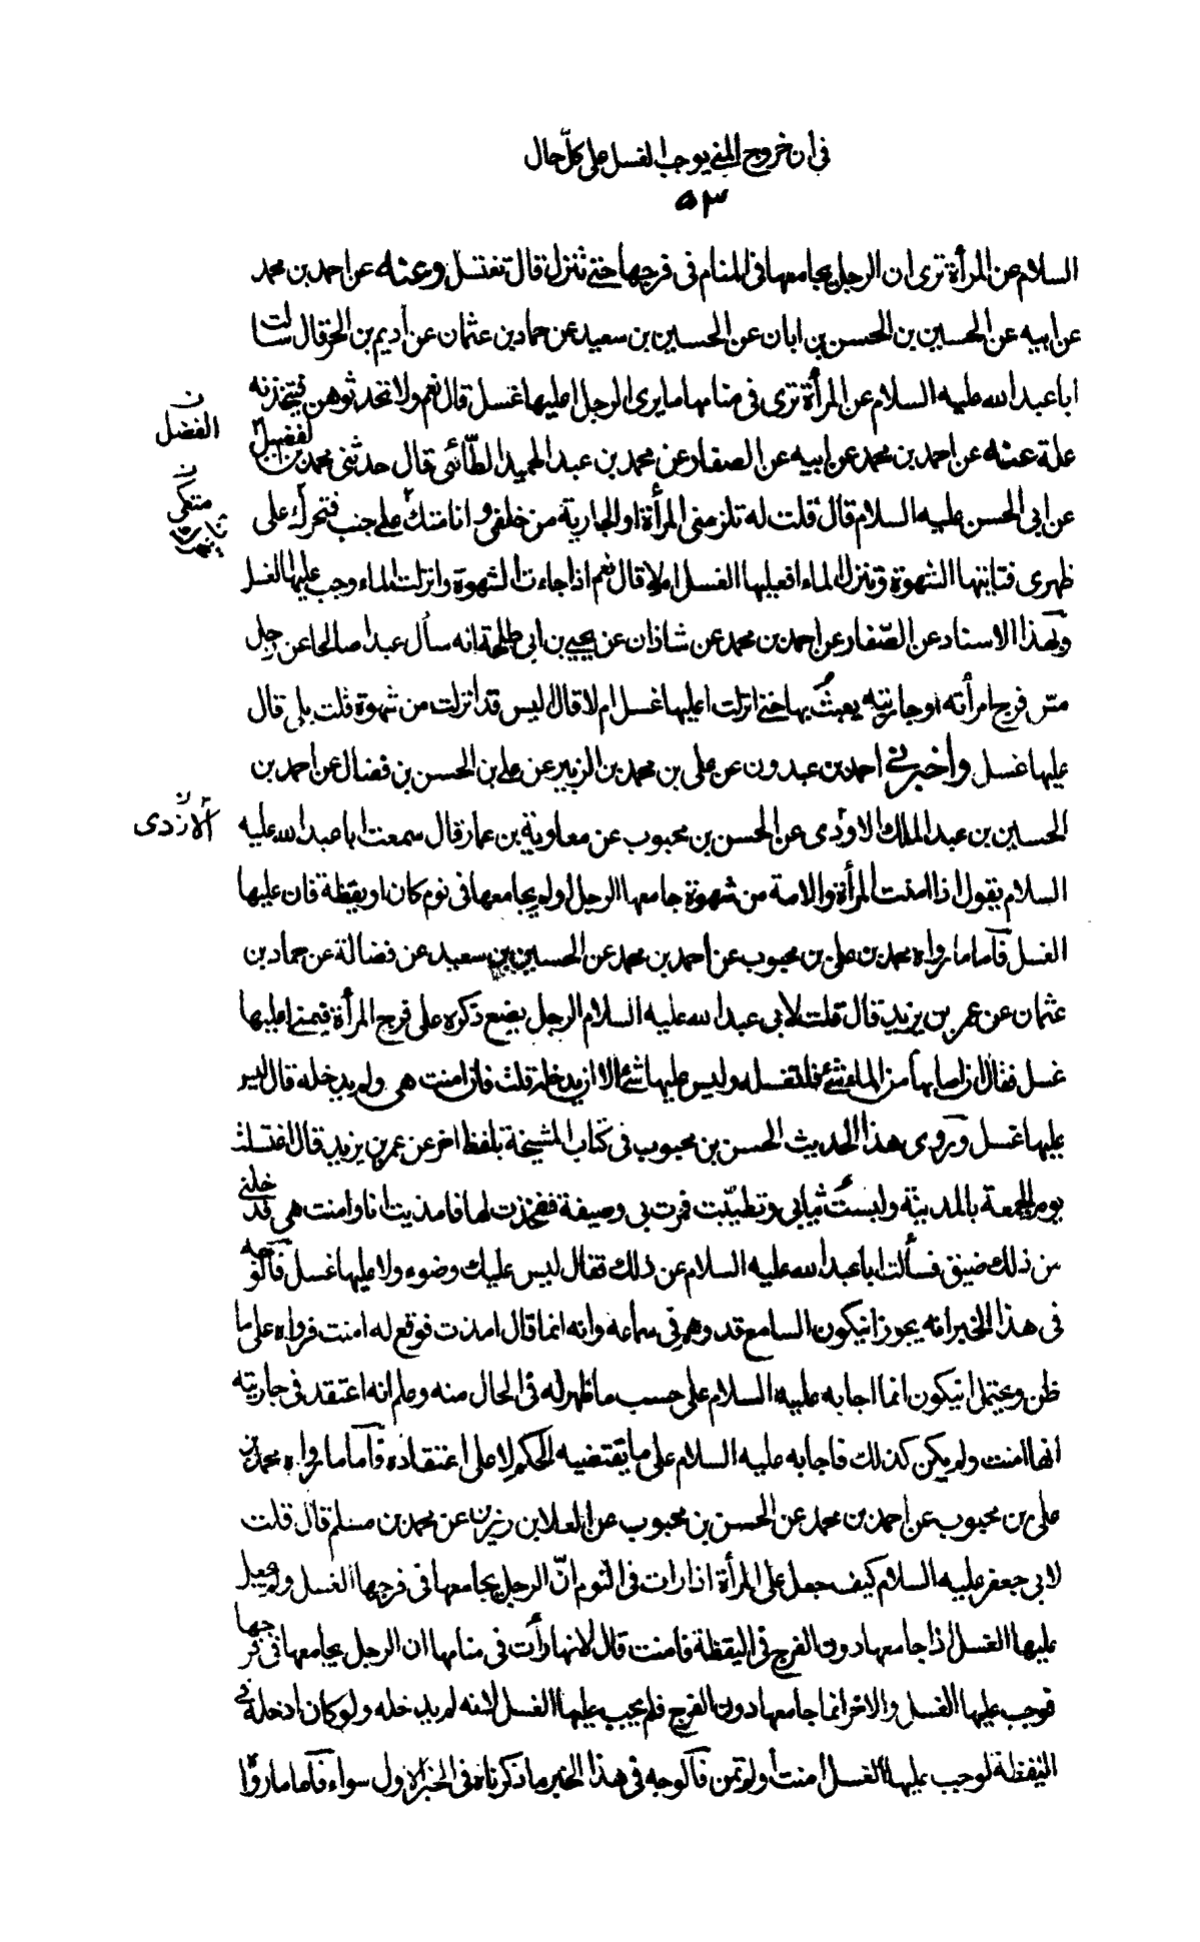 في أن خروج المني يوجب الغسل على كلّ حال
٥٣
السلام عن المرأة ترى ان الرجل يجامعها في المنام في فرجها حتى تنزل قال تغتسل وعنه عن احمد بن محمد
عن ابيه عن الحسين بن الحسن بن ابان عن الحسين بن سعيد عن حماد بن عثمان عن اديم بن الحر قال سألت
ابا عبد الله عليه السلام عن المرأة ترى في منامها ما يرى الرجل اعليها غسل قال نعم ولا تحدثوهن فيتخذنه
الفضل ن
علة عنه عن احمد بن محمد عن ابيه عن الصفار عن محمد بن عبد الحميد الطائي قال حدثني محمد بن الفضيل
متكى ن
عن ابي الحسن عليه السلام قال قلت له تلزمني المرأة او الجارية من خلفي وانا متكئ على جنب فتحرك على
ظهري فتأتيها الشهوة وتنزل الماء افعليها الغسل ام لا قال نعم اذا جاءت الشهوة وانزلت الماء وجب عليها الغسل
وبهذا الاسناد عن الصّفار عن احمد بن محمد عن شاذان عن يحيى بن ابي طلحة انه سأل عبدا صالحا عن رجل
مسّ فرج امرأته او جاريته يعبث بها حتى انزلت اعليها غسل ام لا قال اليس قد انزلت من شهوة قلت بلى قال
عليها غسل واخبرني احمد بن عبدون عن على بن محمد بن الزبير عن على بن الحسن بن فضال عن احمد بن
الازدى ن
الحسين بن عبد الملك الاودى عن الحسن بن محبوب عن معاوية بن عمار قال سمعت ابا عبد الله عليه
السلام يقول اذا امنت المرأة والامة من شهوة جامعها الرجل او لم يجامعها في نوم كان او يقظة فان عليها
الغسل فاما ما رواه محمد بن على بن محبوب عن احمد بن محمد عن الحسين بن سعيد عن فضالة عن حماد بن
عثمان عن عمر بن يزيد قال قلت لابي عبد الله عليه السلام الرجل يضع ذكره على فرج المرأة فيمني اعليها
غسل فقال ان اصابها من الماء شئ فلتغسله وليس عليها شئ الا ان يدخله قلت فان امنت هي ولم يدخله قال ليس
عليها غسل وروى هذا الحديث الحسن بن محبوب في كتاب المشيخة بلفظ اخر عن عمر بن يزيد قال اغتسلت
يوم الجمعة بالمدينة ولبست ثيابي وتطيّبت فمرت بي وصيفة ففخذت لها فامذيت انا وامنت هي فدخلني
من ذلك ضيق فسألت ابا عبد الله عليه السلام عن ذلك فقال ليس عليك وضوء ولا عليها غسل فالوجه
في هذا الخبر انه يجوز ان يكون السامع قد وهم في سماعه وانه انما قال امذت فوقع له امنت فرواه على ما
ظن ويحتمل ان يكون انما اجابه عليه السلام على حسب ما ظهر له في الحال منه وعلم انه اعتقد في جاريته
انها امنت ولم يكن كذلك فاجابه عليه السلام على ما يقتضيه الحكم لا على اعتقاده فاما ما رواه محمد بن
على بن محبوب عن احمد بن محمد عن الحسن بن محبوب عن العلا بن رزين عن محمد بن مسلم قال قلت
لابي جعفر عليه السلام كيف جعل على المرأة اذا رات في النوم انّ الرجل يجامعها في فرجها الغسل ولم يجعل
عليها الغسل اذا جامعها دون الفرج في اليقظة فامنت قال لانها رأت في منامها ان الرجل يجامعها في فرجها
فوجب عليها الغسل والاخر انما جامعها دون الفرج فلم يجب عليها الغسل لانه لم يدخله ولو كان ادخله في
اليقظة لوجب عليها الغسل امنت او لم تمن فالوجه في هذا الخبر ما ذكرناه في الخبر الاول سواء فاما ما رواه